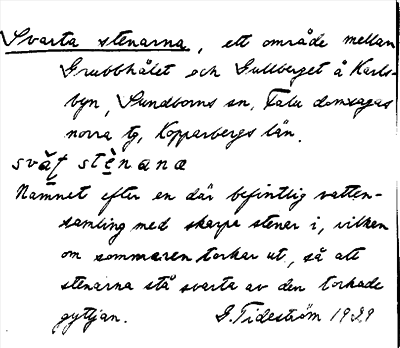 Svarta stenarna, ett område mellan
Grubbhålet och Gullberget å Karls-
byn, Sundborns sn, Falu domsagas
norra tg, Kopparbergs län.
svăț stè̱nanɑ
Namnet efter en där befintlig vatten-
samling med skarpa stenar i, vilken
om sommaren torkar ut, så att
stenarna stå svarta av den torkade
gyttjan. G. Tideström 1929